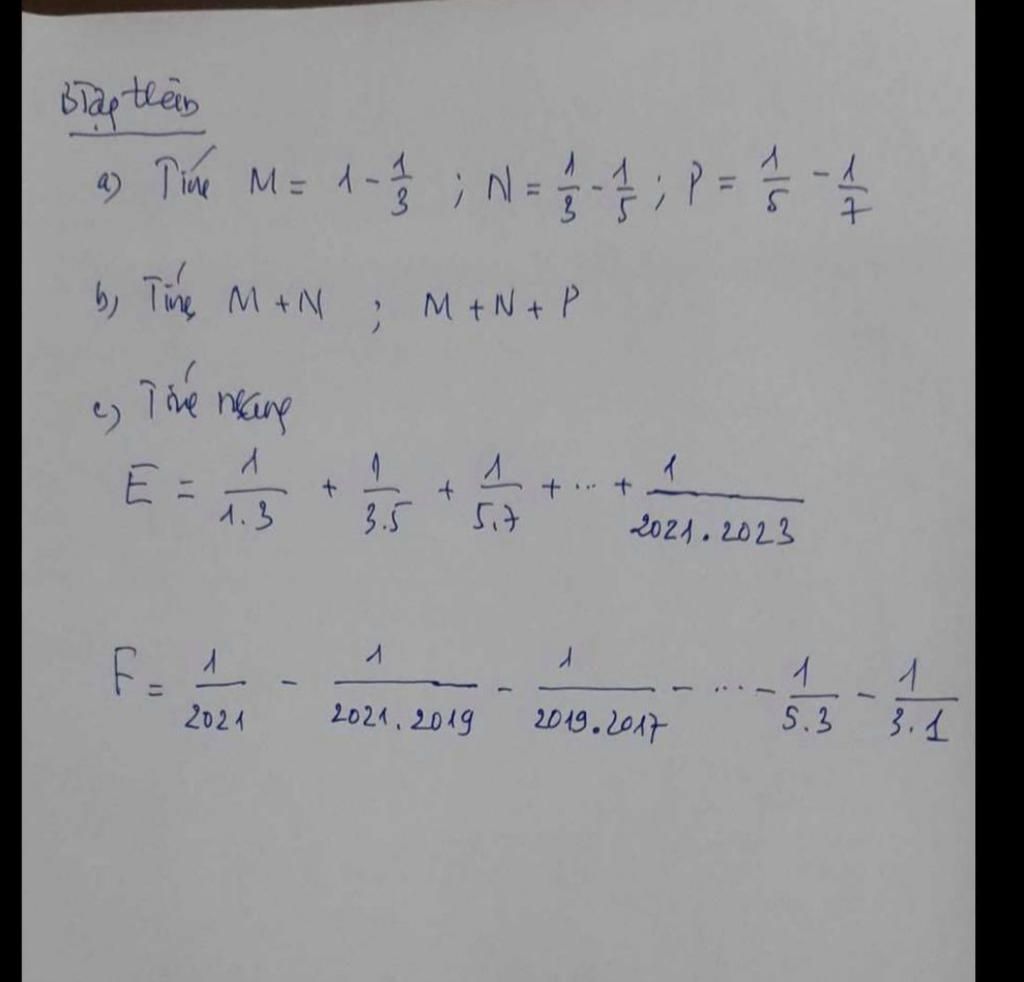 BTập thêm
a) Tính M = 1 - 1/3 ; N = 1/3 - 1/5 ; P = 1/5 - 1/7
b) Tính M + N ; M + N + P
c) Tính nhanh
E = 1/1.3 + 1/3.5 + 1/5.7 + ... + 1/2021.2023
F = 1/2021 - 1/2021.2019 - 1/2019.2017 - ... - 1/5.3 - 1/3.1